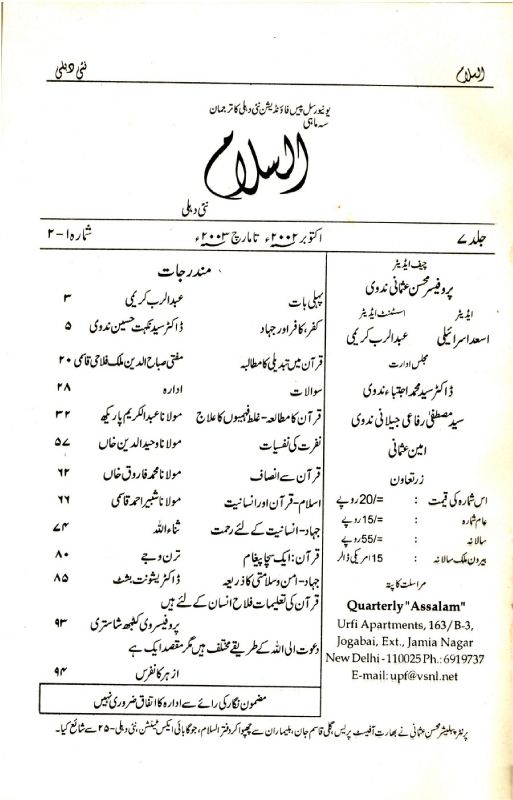 السلام نئی دہلی
یونیورسل پیس فاؤنڈیشن نئی دہلی کا ترجمان
سہ ماہی
السلام
نئی دہلی
جلد ۷ اکتوبر ۲۰۰۲ء تا مارچ ۲۰۰۳ء شمارہ ۱-۲
چیف ایڈیٹر
پروفیسر محسن عثمانی ندوی
ایڈیٹر اسسٹنٹ ایڈیٹر
اسعد اسرائیلی عبدالرب کریمی
مجلس ادارت
ڈاکٹر سید محمد اجتباء ندوی
سید مصطفیٰ رفاعی جیلانی ندوی
امین عثمانی
زر تعاون
اس شمارہ کی قیمت : =/20 روپے
عام شمارہ : =/15 روپے
سالانہ : =/55 روپے
بیرون ملک سالانہ : 15 امریکی ڈالر
مراسلت کا پتہ
Quarterly "Assalam"
Urfi Apartments, 163/B-3,
Jogabai, Ext., Jamia Nagar
New Delhi - 110025 Ph.: 6919737
E-mail: upf@vsnl.net
مندرجات
پہلی بات عبدالرب کریمی ۳
کفر، کافر اور جہاد ڈاکٹر سید نکہت حسین ندوی ۵
قرآن میں تبدیلی کا مطالبہ مفتی صباح الدین ملک فلاحی قاسمی ۲۰
سوالات ادارہ ۲۸
قرآن کا مطالعہ - غلط فہمیوں کا علاج مولانا عبدالکریم پاریکھ ۳۲
نفرت کی نفسیات مولانا وحیدالدین خاں ۵۷
قرآن سے انصاف مولانا محمد فاروق خاں ۶۲
اسلام - قرآن اور انسانیت مولانا شبیر احمد قاسمی ۶۶
جہاد - انسانیت کے لئے رحمت ثناء اللہ ۷۴
قرآن: ایک سچا پیغام ترن وجے ۸۰
جہاد - امن و سلامتی کا ذریعہ ڈاکٹر یشونت بشٹ ۸۵
قرآن کی تعلیمات فلاح انسان کے لئے ہیں
پروفیسر وی کٹمبھ شاستری ۹۳
دعوت الی اللہ کے طریقے مختلف ہیں مگر مقصد ایک ہے
ازہر کانفرس ۹۴
مضمون نگار کی رائے سے ادارہ کا اتفاق ضروری نہیں
پرنٹر پبلیشر محسن عثمانی نے بھارت آفیسٹ پریس، گلی قاسم جان، بلیماران سے چھپوا کر دفتر السلام، جوگابائی ایکس ٹینشن نئی دہلی - ۲۵ سے شائع کیا۔